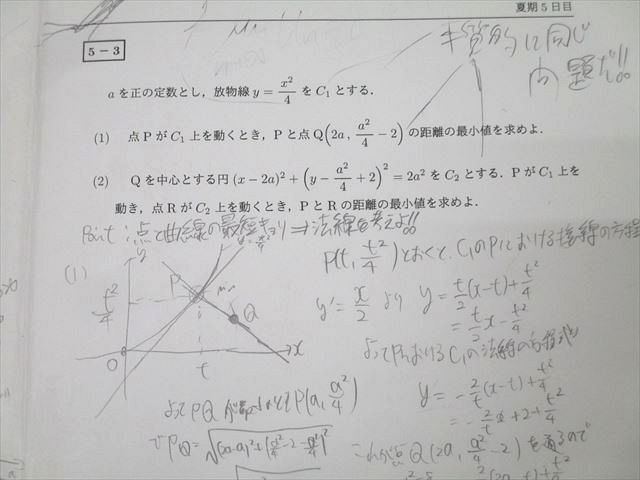 夏期5日目
5－3
本質的に同じ
問題だ!!
aを正の定数とし，放物線 y = x²/4 を C₁ とする．
(1) 点PがC₁上を動くとき，Pと点Q(2a, a²/4 − 2)の距離の最小値を求めよ．
(2) Qを中心とする円 (x − 2a)² + (y − a²/4 + 2)² = 2a² を C₂ とする．PがC₁上を
動き，点RがC₂上を動くとき，PとRの距離の最小値を求めよ．
Point：点と曲線の最短キョリ⇒法線を考えよ!!
P(t, t²/4)とおくと、C₁のPにおける接線の方程
(1)
y
P
min
Q
t²/4
O
t
x
y' = x/2 より y = t/2(x−t) + t²/4
= t/2 x − t²/4
よってPにおけるC₁の法線の方程式は
y = −2/t(x−t) + t²/4
= −2/t x + 2 + t²/4
よってPQが P(a, a²/4)
でPQ = √((2a−a)² + (a²/4 − 2 − a²/4)²)
これが点Q(2a, a²/4 − 2)を通るので